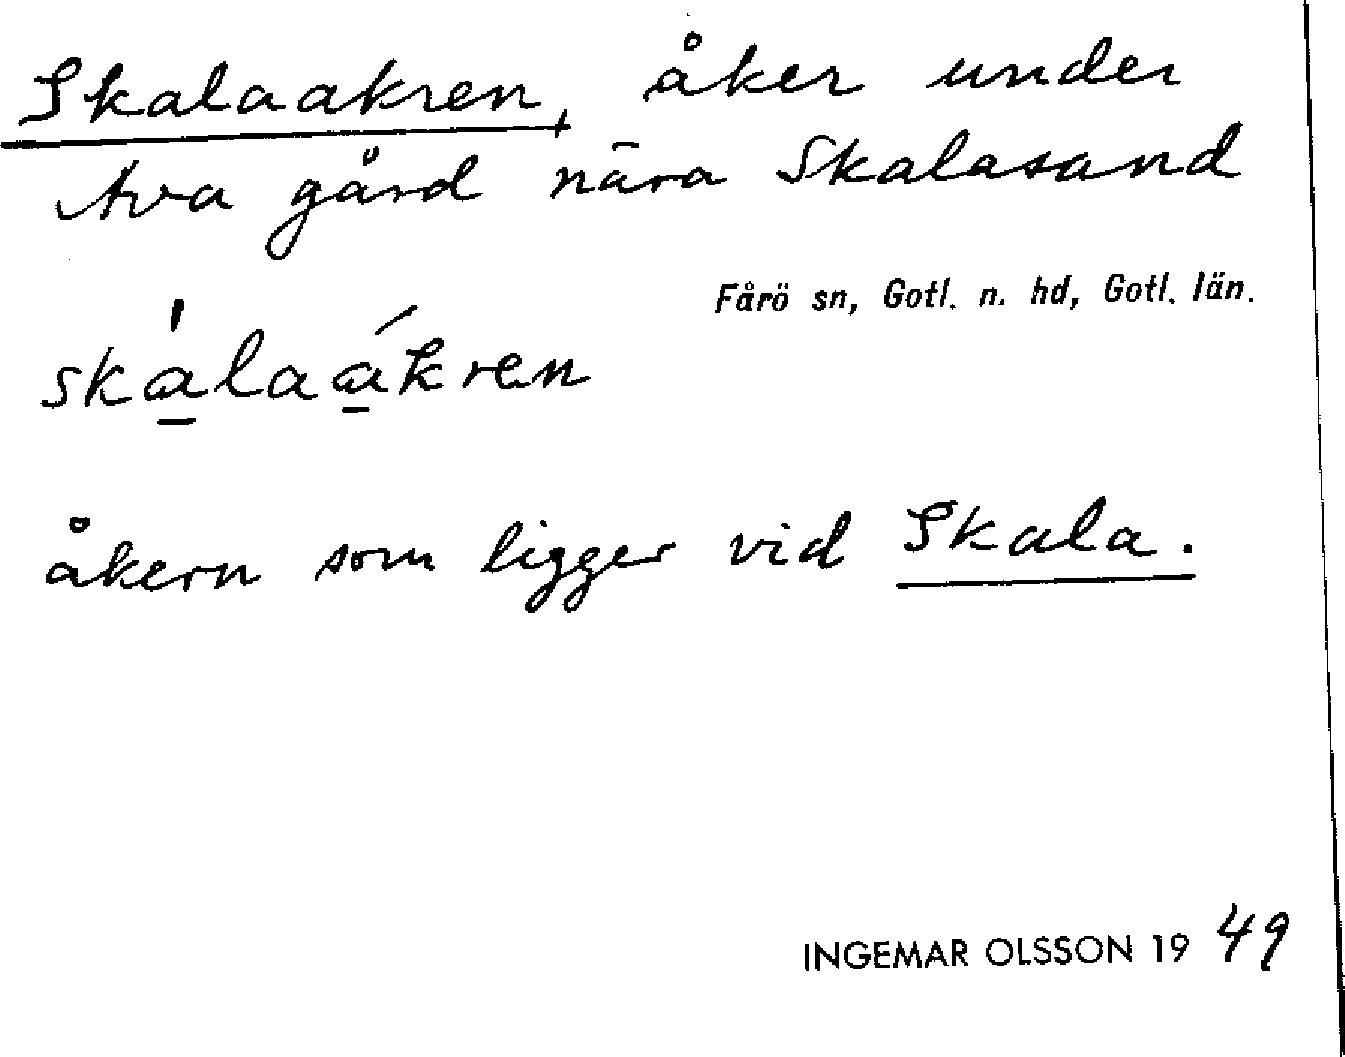 Skalaakren, åker under
Ava gård nära Skalasand
Fårö sn, Gotl. n. hd, Gotl. län.
skálaákren
åkern som ligger vid Skala.
INGEMAR OLSSON 1949